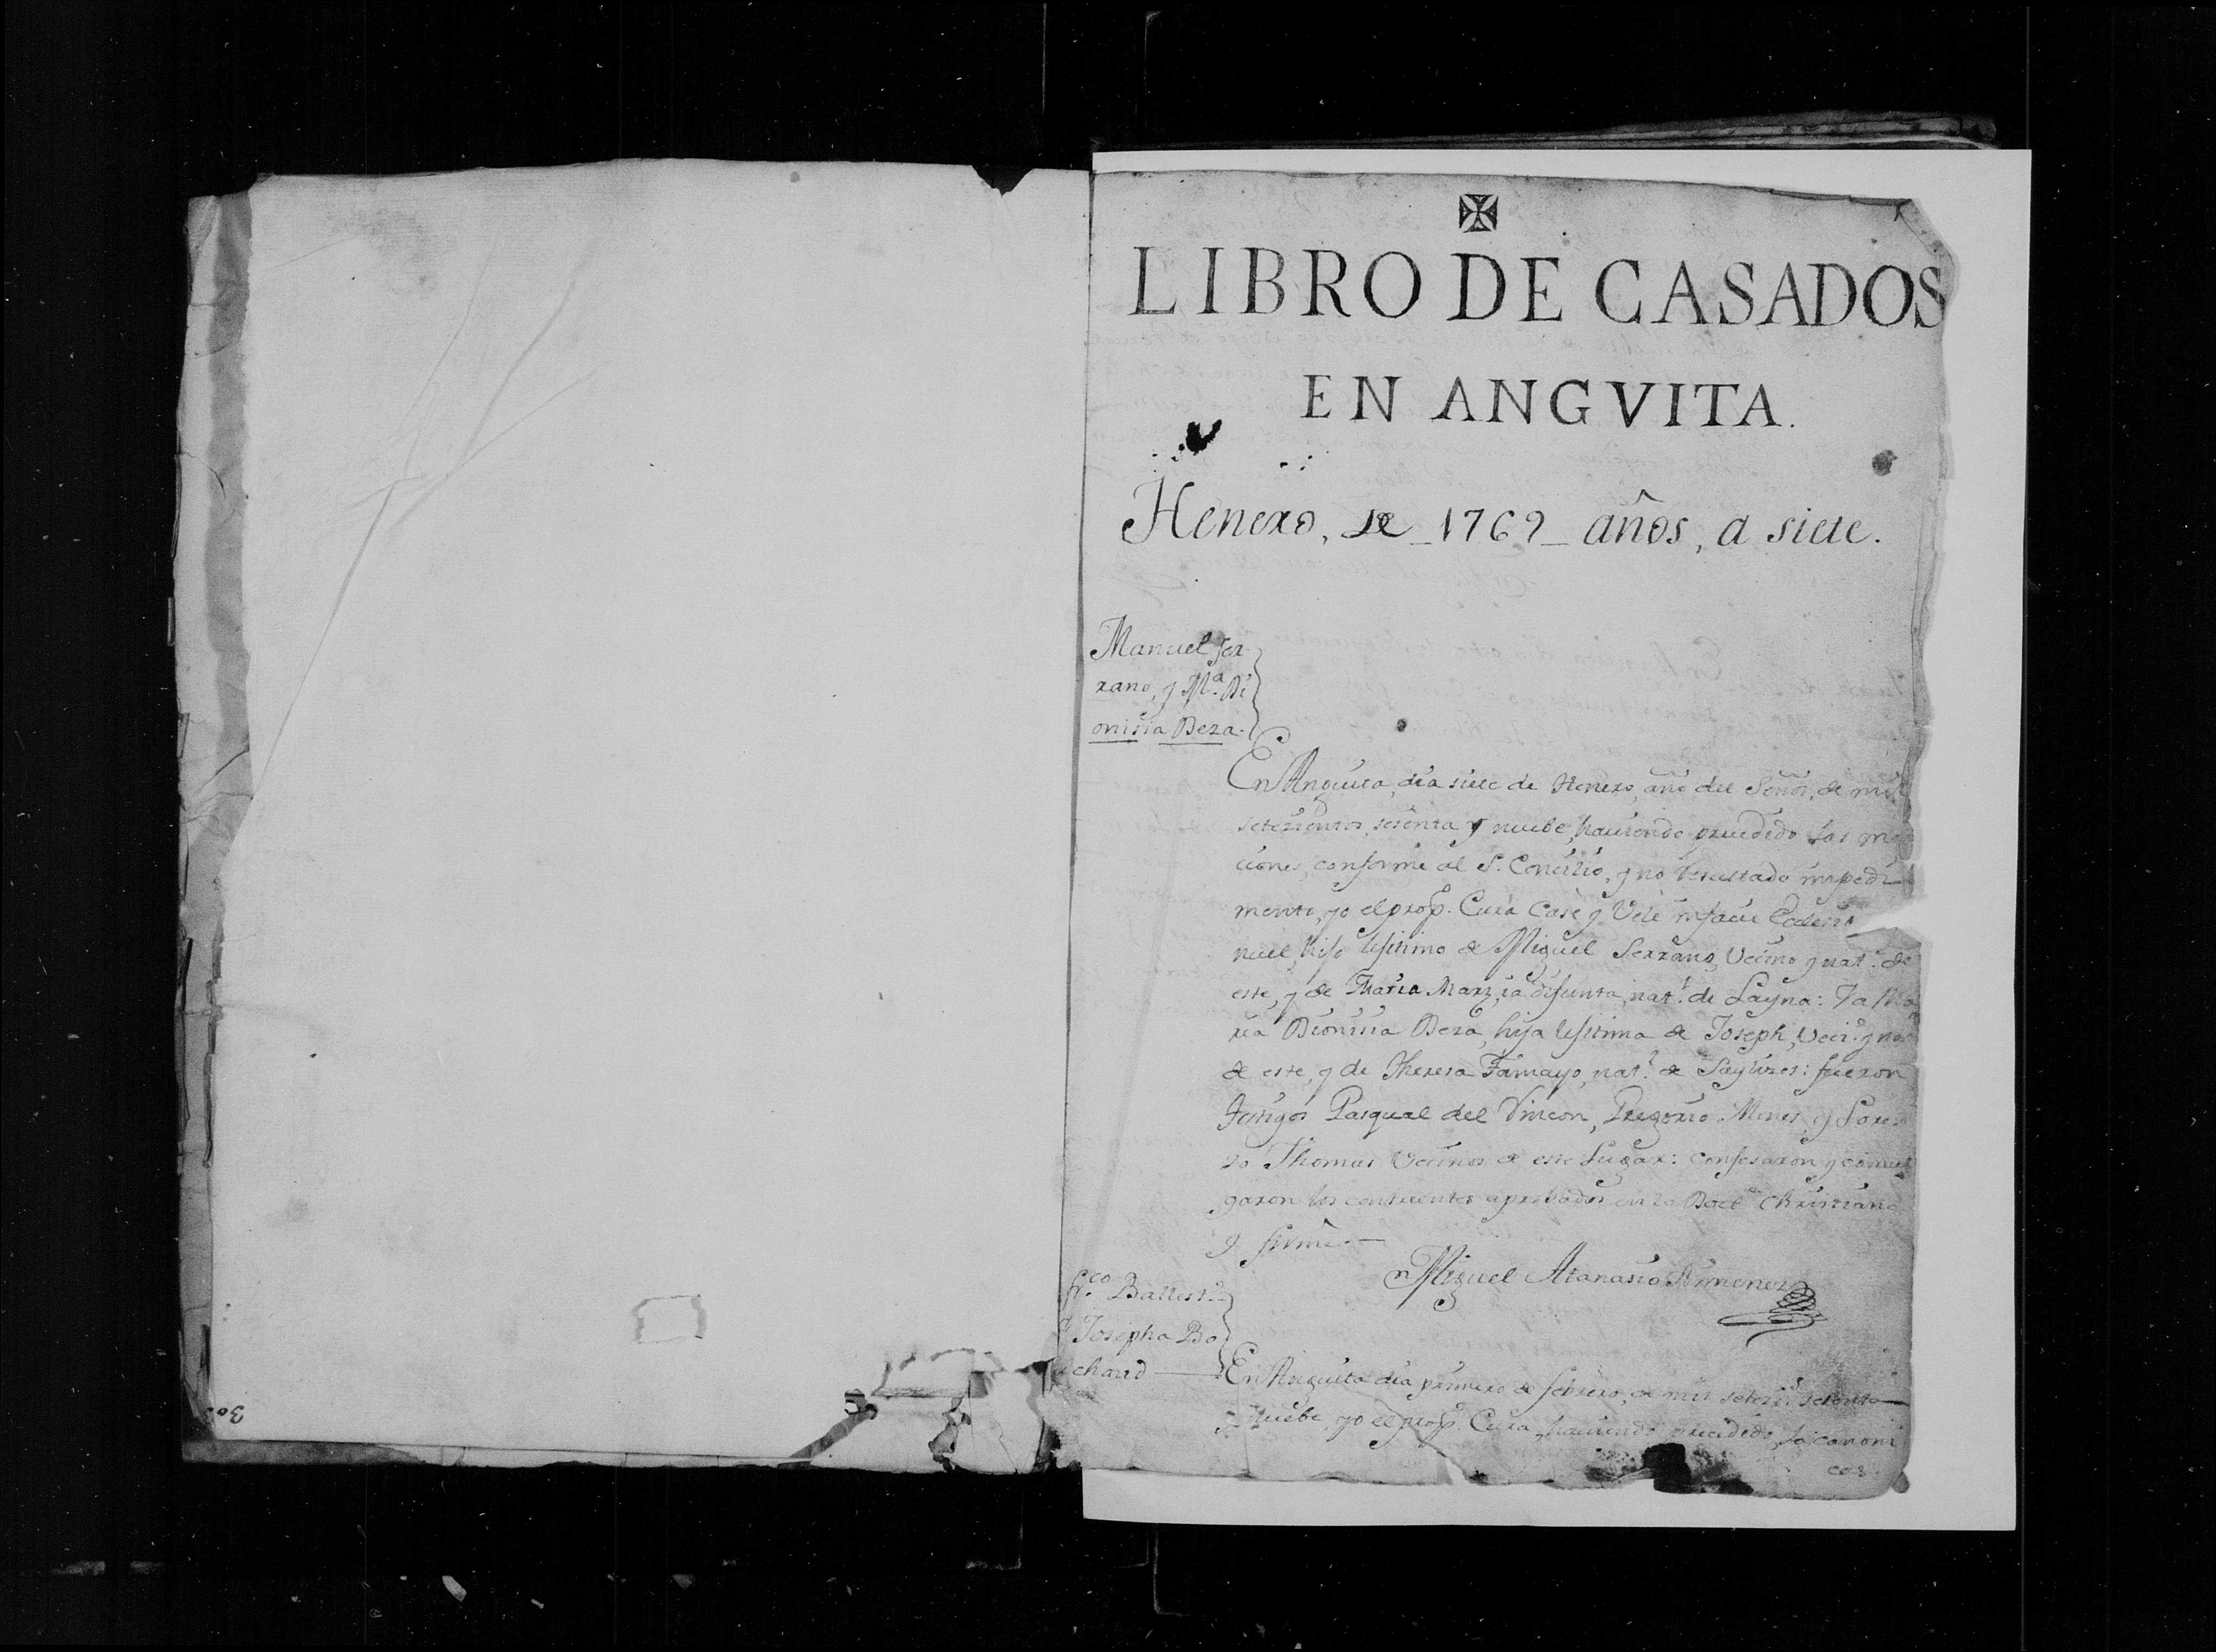 LIBRO DE CASADOS
EN ANGVITA.
Henero, de 1769 años, a siete.
Manuel Ser
rano, y M.ª Di
onisia Deza.
En Anguita, dia siete de Henero, año del Señor, de mil
setezientos, sesenta y nuebe, haviendo precedido las mo
ciones, conforme al S. Concilio, y no resultado impedi
mento, yo el prop. Cura Case y Vele infacie
nuel, hijo lejitimo de Miguel Serrano, Vecino y nat. de
este, y de Maria Marz, ia difunta, nat. de Layna: Ya Ma
ria Dionisia Deza, hija lejitima de Joseph, Veci. y nat
de este, y de Theresa Tamayo, nat. de : fueron
testigos Pasqual del Vincon, Gregorio Mines, y Loren
zo Thomas Vecinos de este Lugar: confesaron y comul
garon los contraentes aprobados en la Doct. Christiana
y firmè.
Miguel Atanasio Ximenez
Fr.co Ballest.
y Josepha Bo
chard
En Anguita dia primero de febrero, de mil setez. sesenta
y nuebe, yo el prop. Cura, haviendo precedido, la canoni
cas
300